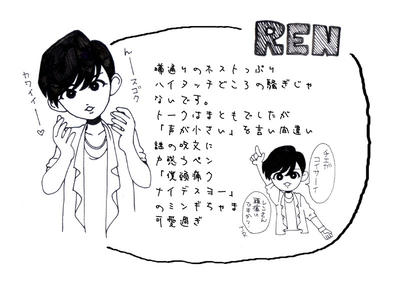 REN
んースゴク
カワイイー♡
噂通りのネストっぷり
ハイタッチどころの騒ぎじゃ
ないです。
トークはまともでしたが
「声が小さい」を言い間違い
謎の呪文に
戸惑うペン
「僕頭痛う
ナイデスヨー」
のミンギちゃま
可愛過ぎ
コイサーイ
頭痛い
ですか?